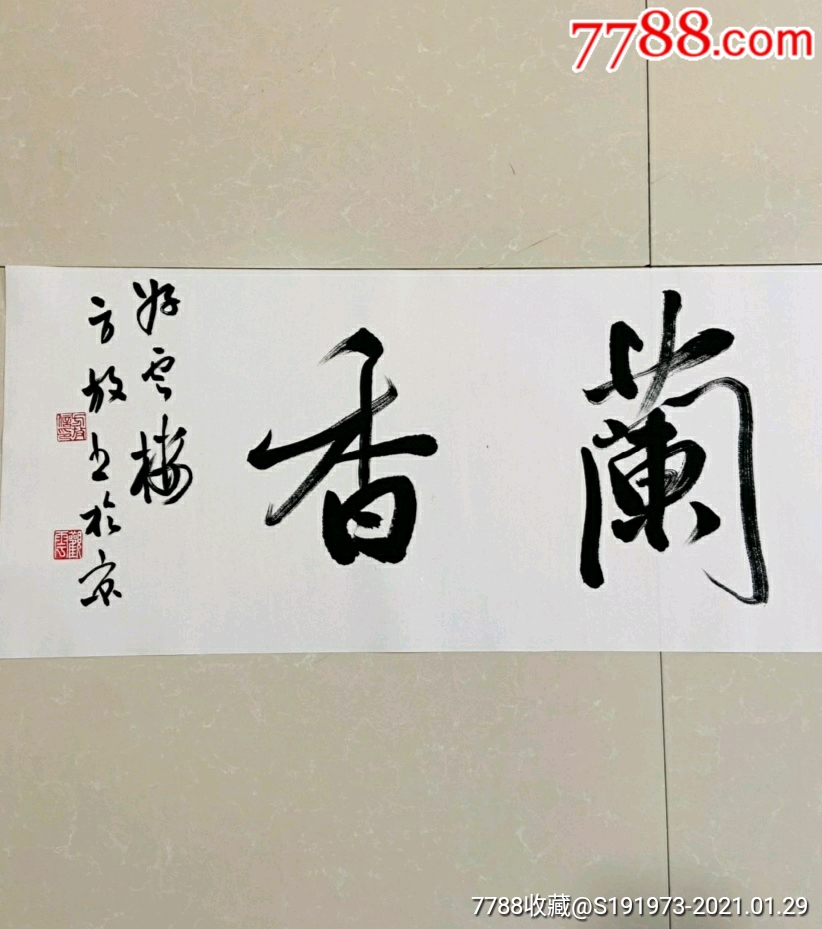 7788.com
蘭香
好雲樓
方放书於京
7788收藏@S191973-2021.01.29